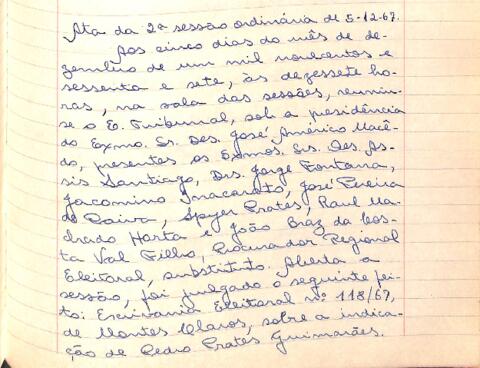 Ata da 2ª sessão ordinária de 5-12-67.
Aos cinco dias do mês de de-
zembro de um mil novecentos e
sessenta e sete, às dezessete ho-
ras, na sala das sessões, reuniu-
se o E. Tribunal, sob a presidência
do Exmo. Sr. Des. José Américo Macê-
do, presentes os Exmos. Srs. Des. As-
sis Santiago, Drs. Jorge Fontana,
Jacomino Inacarato, José Pereira
de Paiva, Spyer Prates, Raul Ma-
chado Horta e João Braz da Cos-
ta Val Filho, Procurador Regional
Eleitoral, substituto. Aberta a
sessão, foi julgado o seguinte fei-
to: Escrivania Eleitoral nº 118/67,
de Montes Claros, sobre a indica-
ção de Pedro Prates Guimarães.